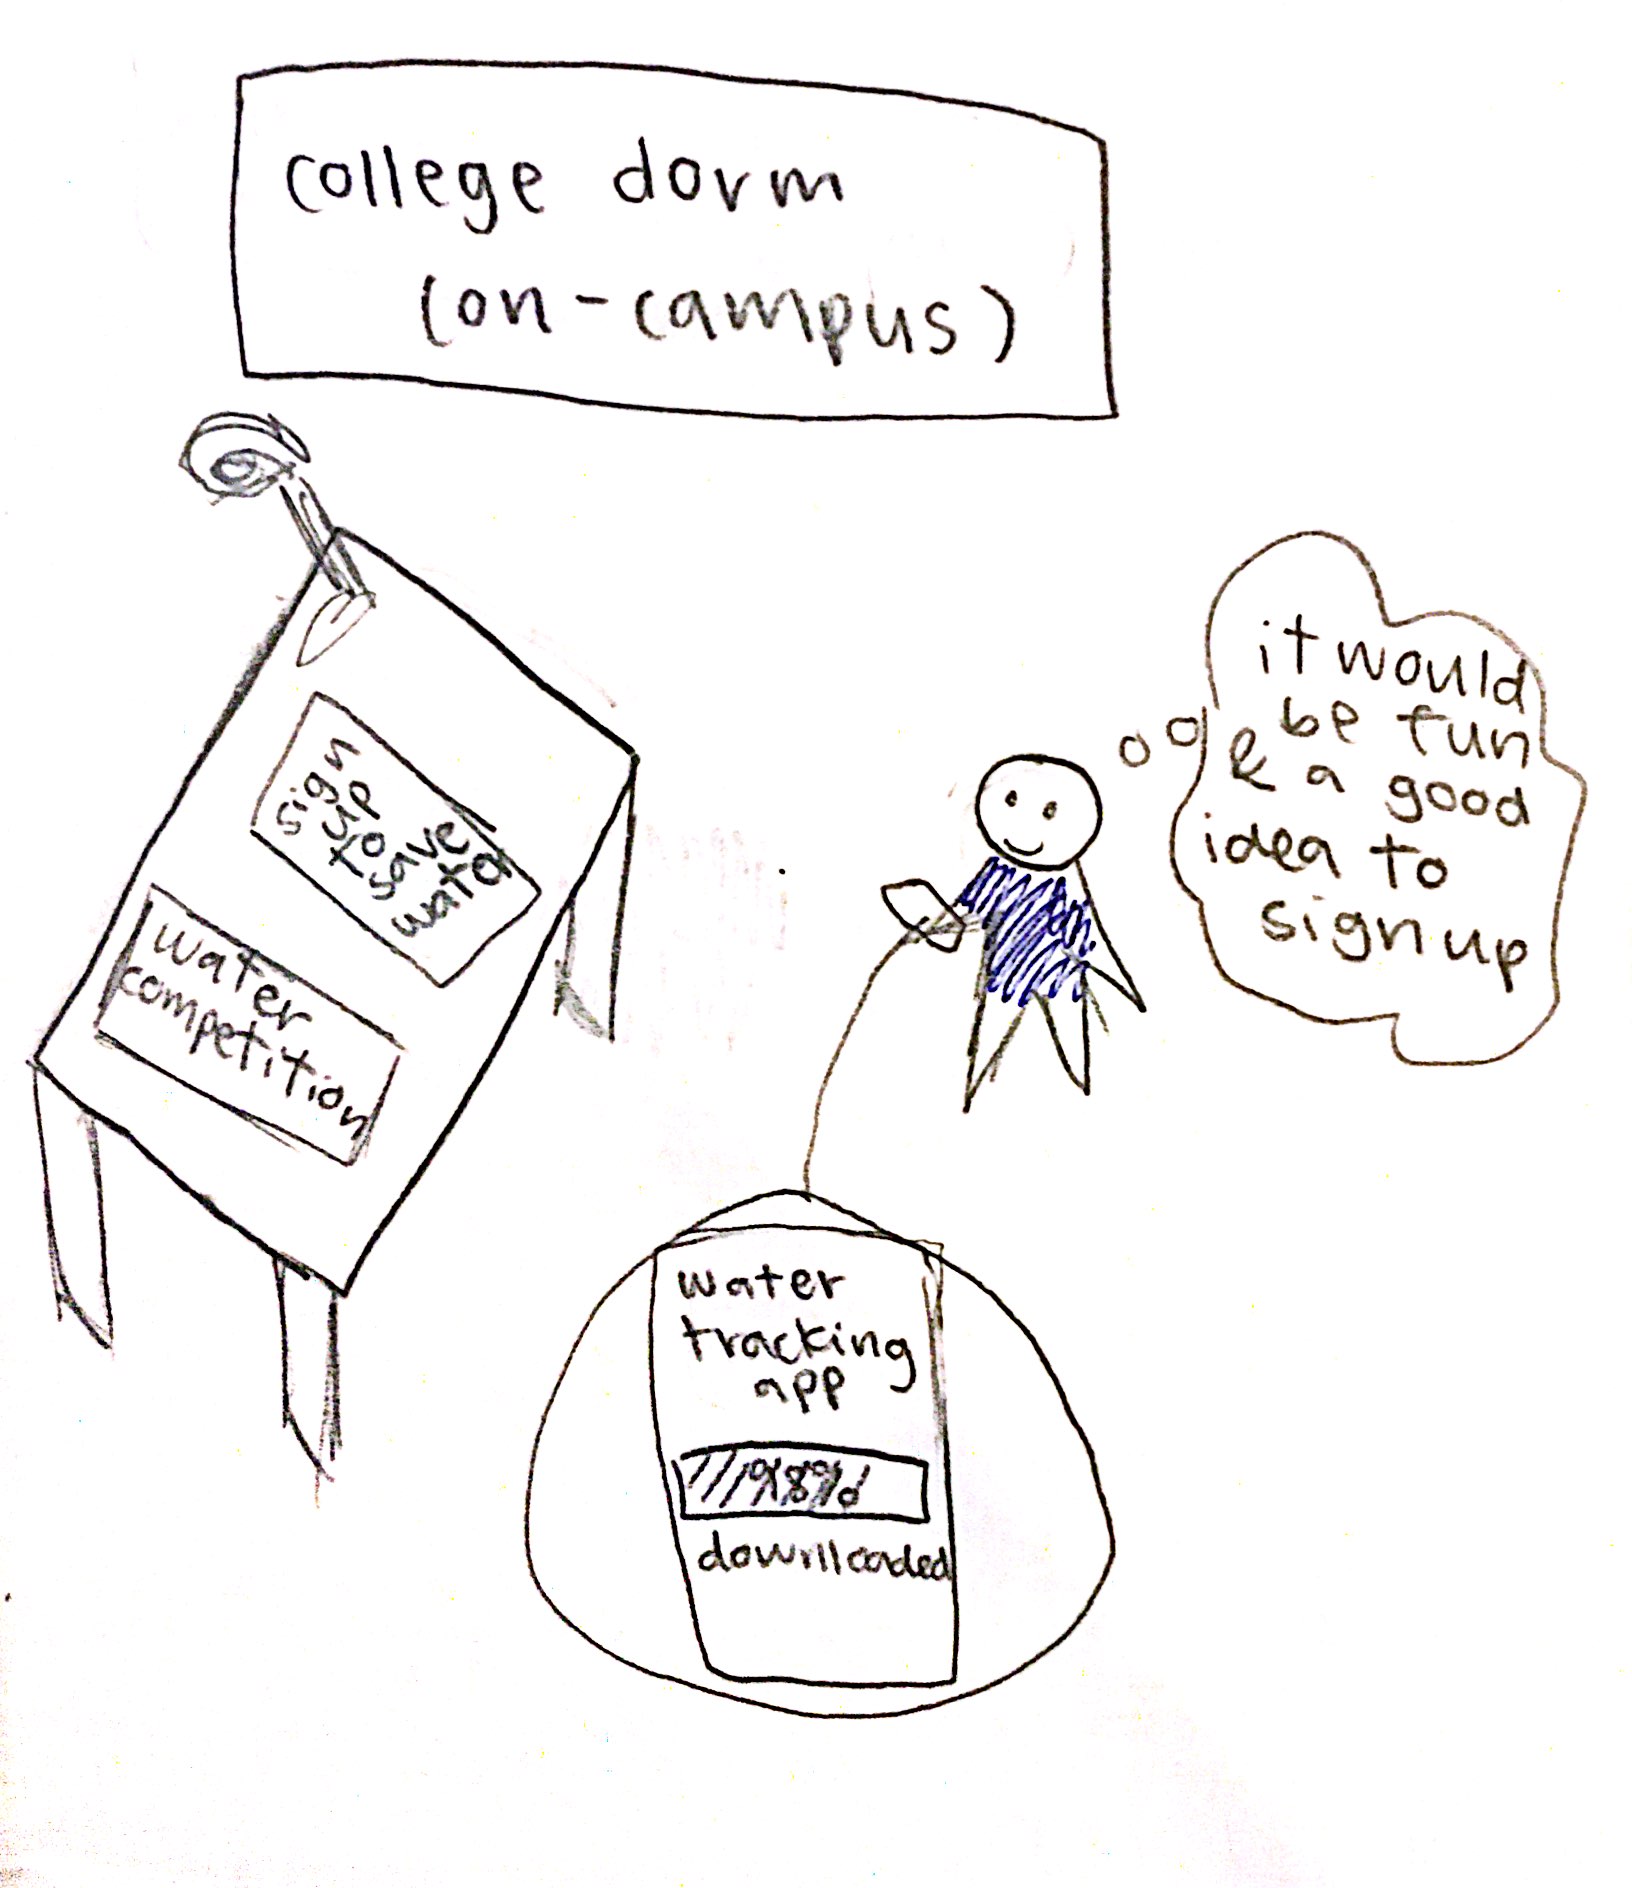 college dorm
(on-campus)
sign
up
to
save
water
water
competition
it would
be fun
& a good
idea to
sign up
water
tracking
app
98%
downloaded